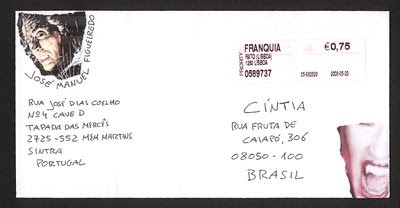 JOSÉ MANUEL FIGUEIREDO
RUA JOSÉ DIAS COELHO
Nº4 CAVE D
TAPADA DAS MERCÊS
2725-552 MEM MARTINS
SINTRA
PORTUGAL
FRANQUIA
€0,75
RATO (LISBOA)
1250 LISBOA
0589737
2005-05-23
CÍNTIA
RUA FRUTA DE
CAIAPÓ, 306
08050-100
BRASIL